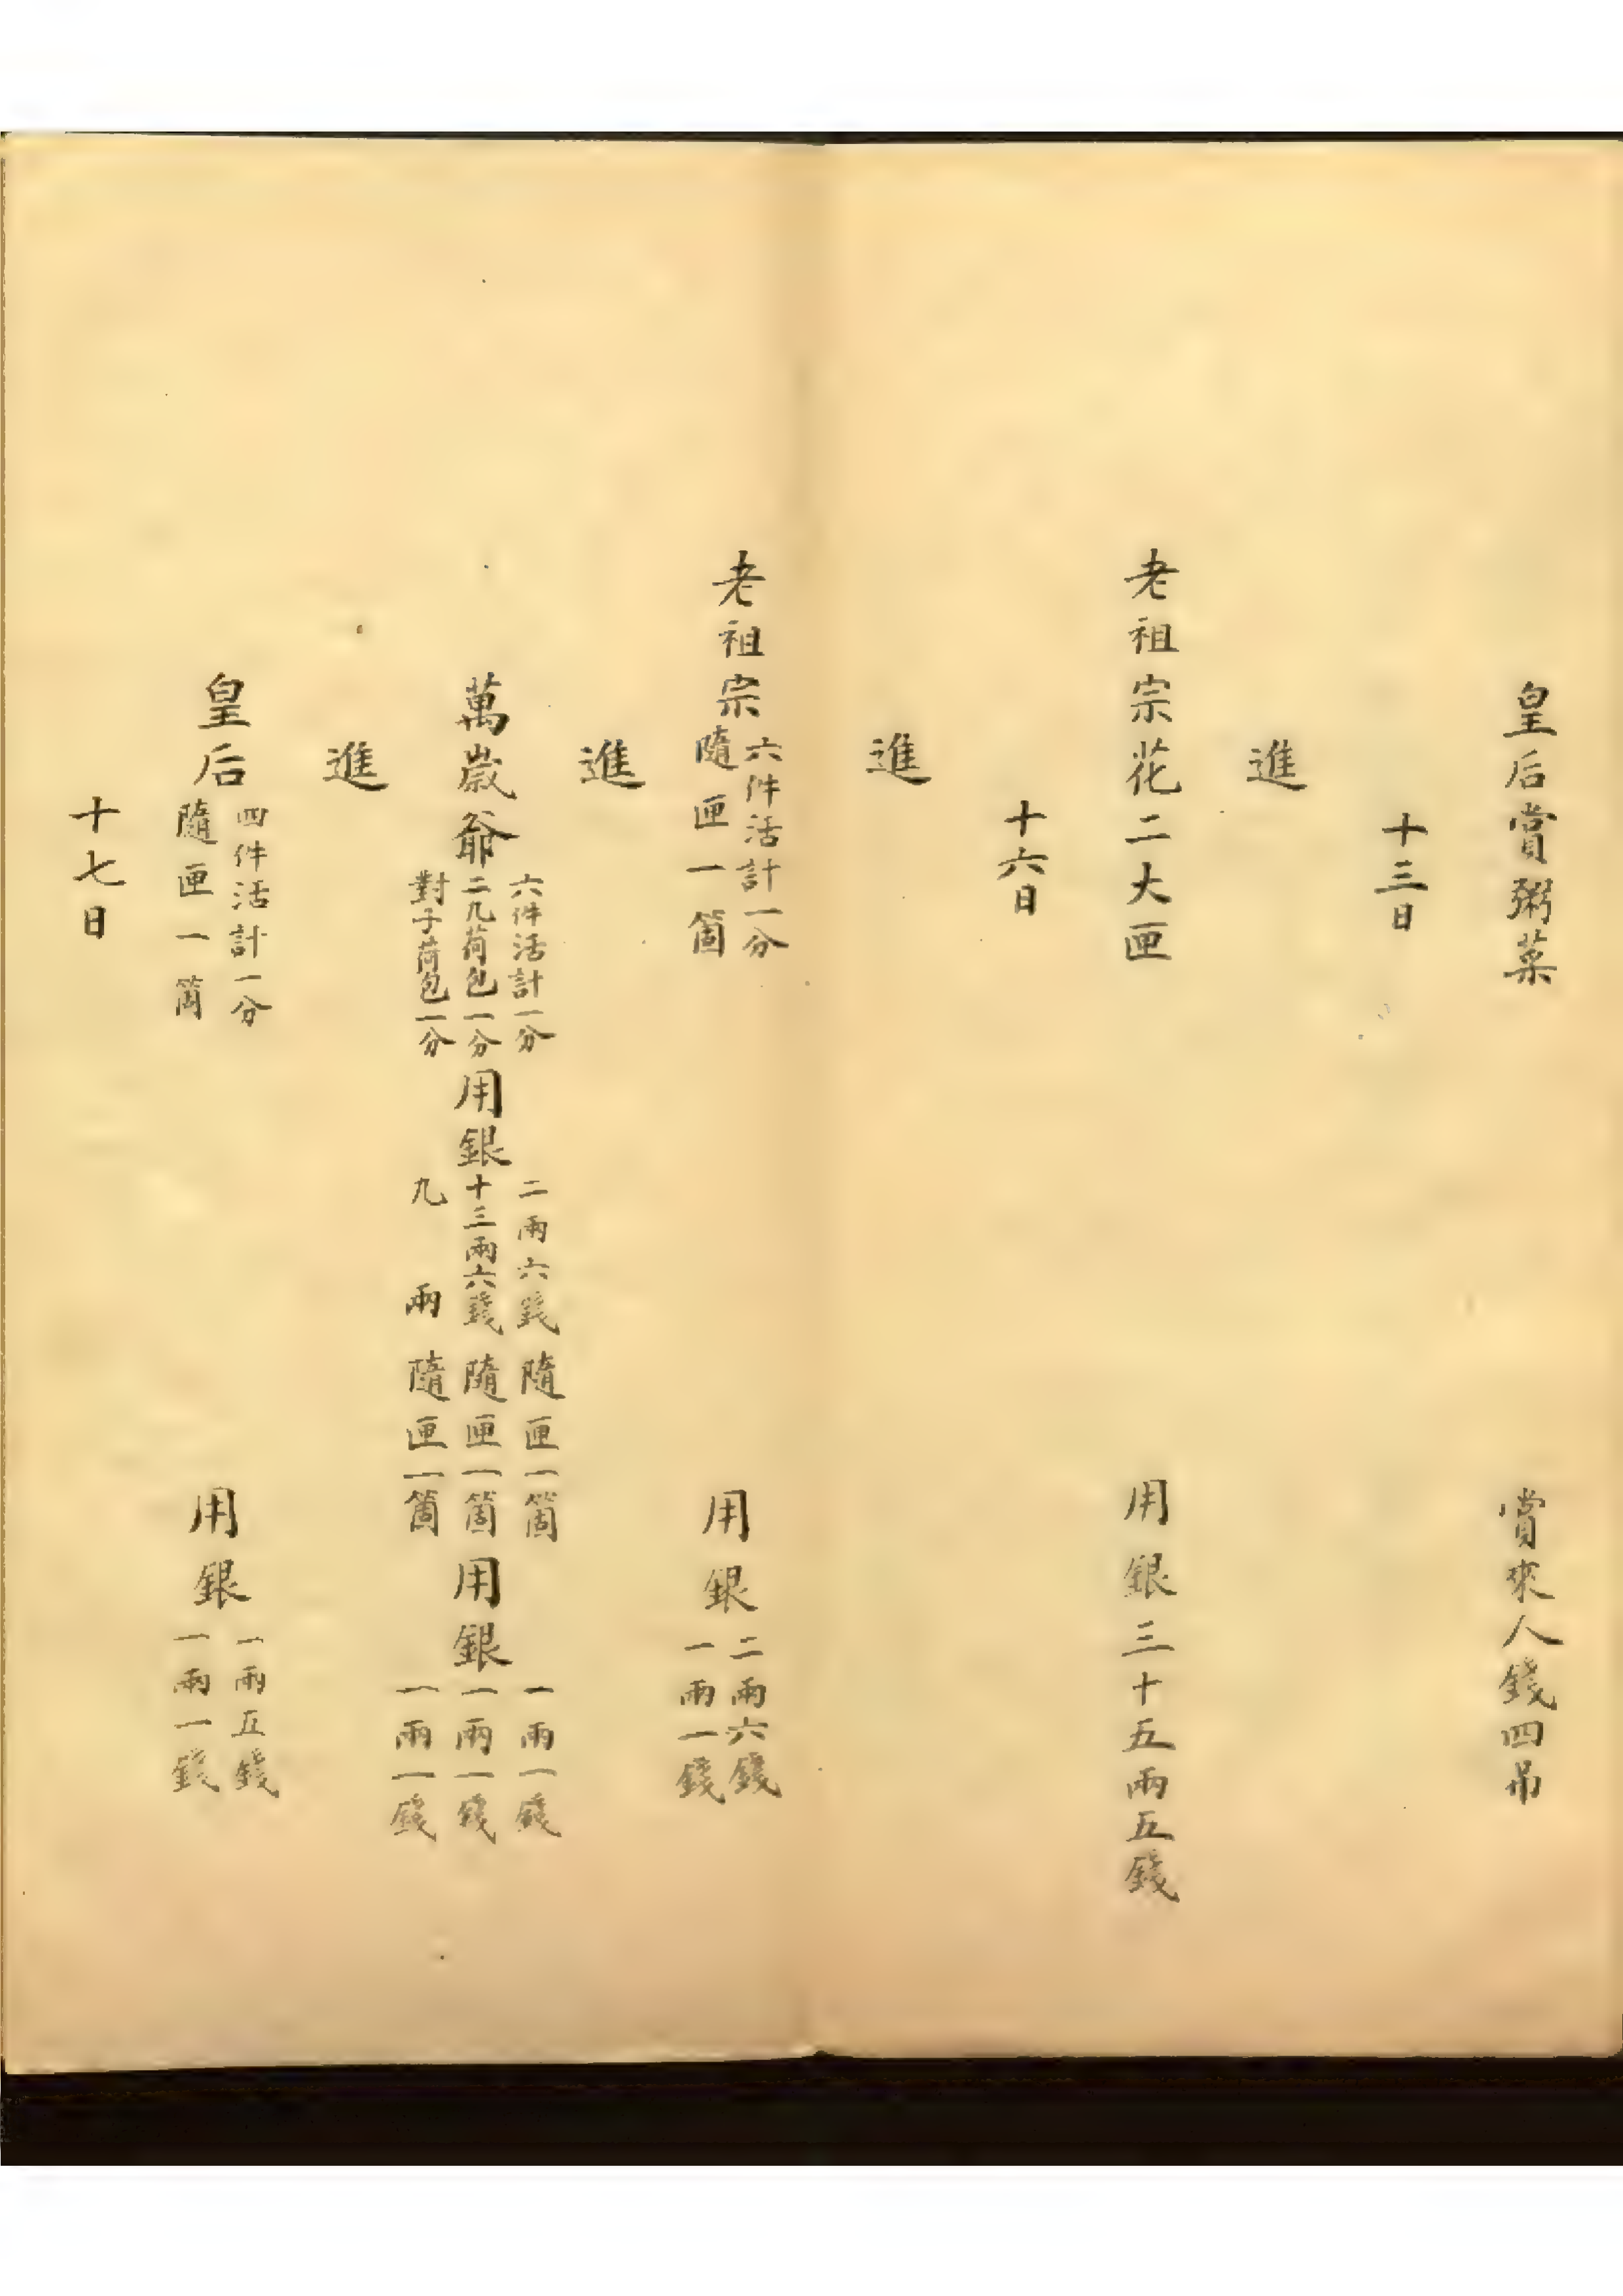 皇后賞粥菜 賞來人錢四吊
十三日
進
老祖宗花二大匣 用銀三十五兩五錢
十六日
進
老祖宗
六件活計一分
隨匣一箇
用銀
二兩六錢
一兩一錢
進
萬歲爺
六件活計一分
二九荷包一分
對子荷包一分
用銀
二兩六錢
十三兩六錢
九兩
隨匣一箇
隨匣一箇
隨匣一箇
用銀
一兩一錢
一兩一錢
一兩一錢
進
皇后
四件活計一分
隨匣一箇
用銀
一兩五錢
一兩一錢
十七日